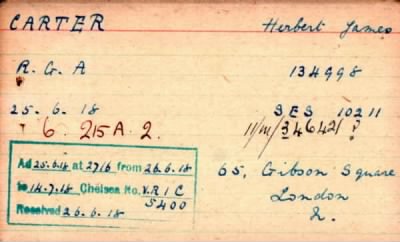 CARTER Herbert James
R.G.A 134998
25.6.18 SES 10211
6. 215A. 2. 11/M/346421 ?
Ad 25.6.18 at 27/6 from 26.6.18
to 14.7.18 Chelsea No. V.R I C
5400
Resolved 26.6.18
65, Gibson Square
London
N.